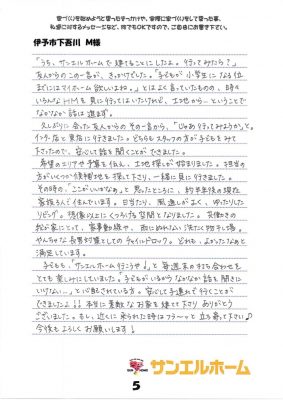 家づくりを始めようと思ったきっかけや、実際に家づくりをして思った事、
私達に対するメッセージなど、何でもOKですので、ご自由にお書き下さい。
伊予市下吾川 M様
「うち、サンエルホームで建てることにしたよ。行ってみたら？」
友人からのこの一言が、きっかけでした。「子どもが小学生になる位
までにはマイホーム欲しいよね。」とはよく言っていたものの、時々
いろんなところを見に行ってはいたけれど、土地から…ということで
なかなか話は進まず。
久しぶりに会った友人からのその一言から、「じゃあ行ってみようか」と、
インター店へ見に行きました。どちらもスタッフの方が子どもをみて
下さったので、安心して話を聞くことができました。
希望のエリアや予算を伝え、土地探しが始まりました。担当の
方がいくつか候補地を探して下さり、一緒に見に行きました。
その時の、ここがいいかなぁ。と思ったところに、約半年後の現在
家族4人で住んでいます。日当たり、風通しがよく、ゆったりした
リビング。想像以上にくつろげる空間となりました。共働きの
私と夫にとって、家事動線や、雨にぬれない洗たく物干し場。
やんちゃな長男対策としてのチャイルドロック。どれも、よかったなぁと
満足しています。
子どもも、「サンエルホーム行こうや！」と毎週末の打ち合わせを
とても楽しみにしていました。子どもがいるからなかなか話を聞きに
いけない…。と心配されている方。安心して子連れで行くことが
できましたよ！！本当に素敵なお家を建てて下さりありがとう
ございました。もし、近くに来られた時はフラ〜っと立ち寄って下さい♪
今後もよろしくお願いします！
サンエルホーム
5